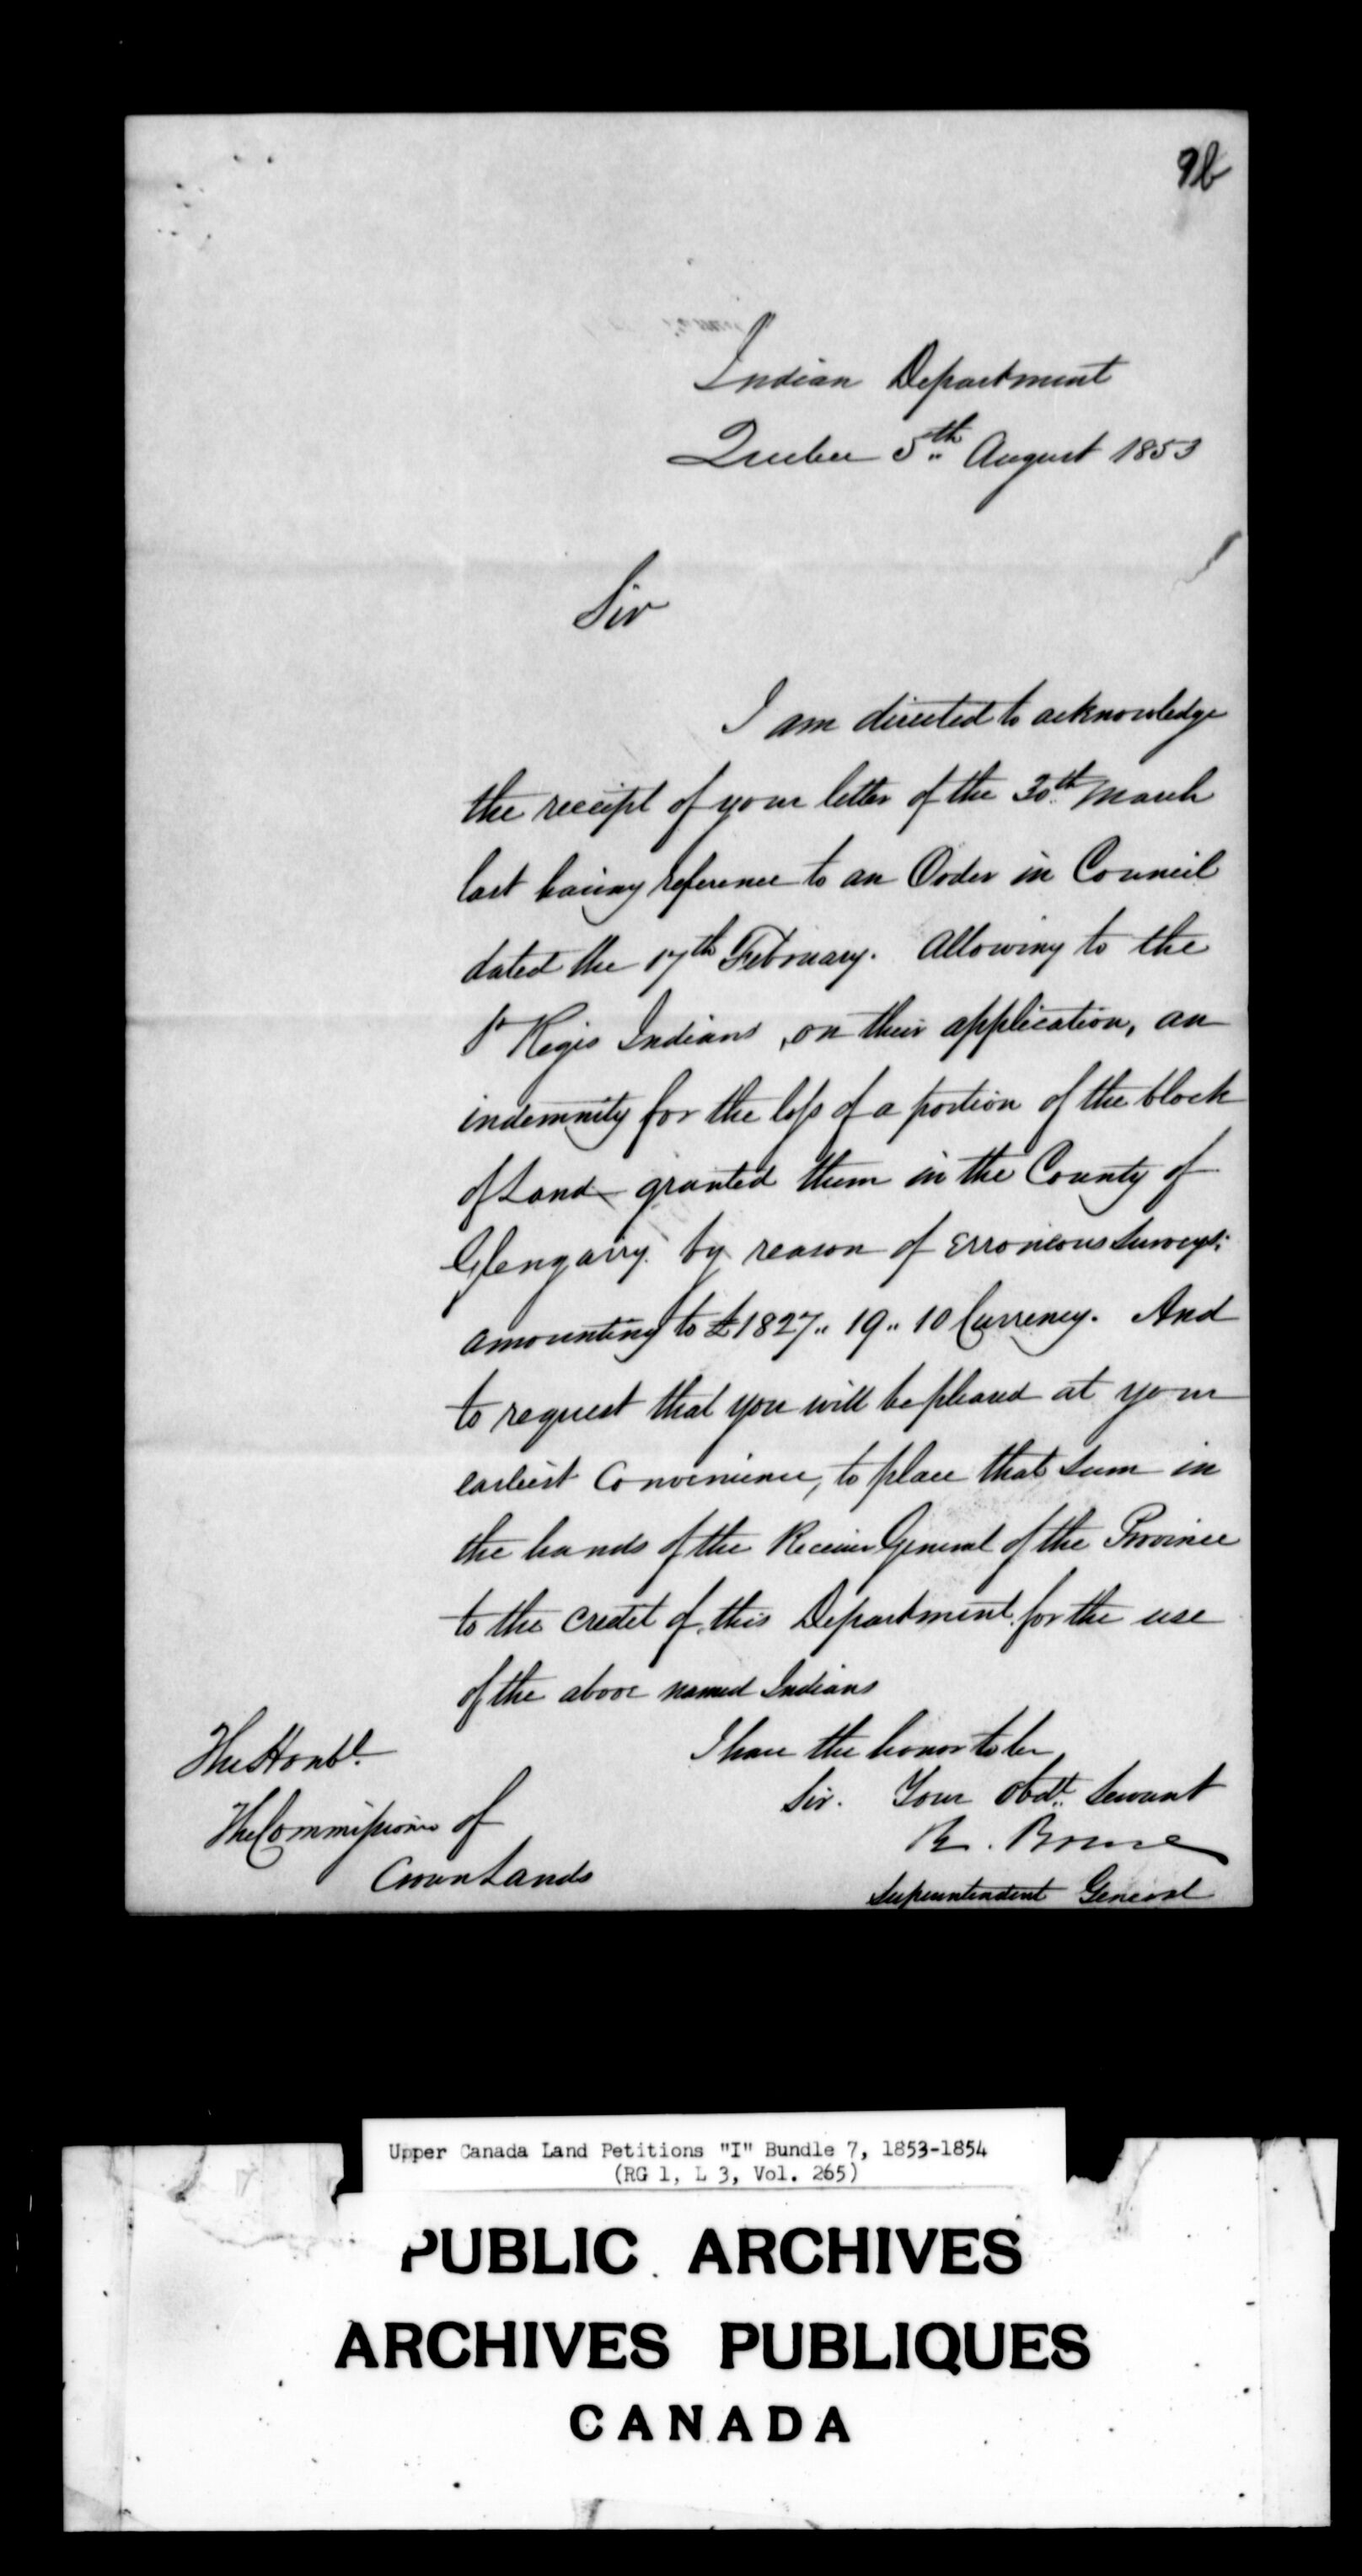 9b
Indian Department
Quebec 5th August 1853
Sir
I am directed to acknowledge
the receipt of your letter of the 30th March
last having reference to an Order in Council
dated the 17th February. Allowing to the
St Regis Indians, on their application, an
indemnity for the loss of a portion of the block
of Land granted them in the County of
Glengarry by reason of erroneous surveys:
amounting to £1827.. 19.. 10 Currency. And
to request that you will be pleased at your
earliest Convenience, to place that sum in
the hands of the Receiver General of the Province
to the credit of this Department for the use
of the above named Indians
I have the honor to be
Sir. Your Obdt. Servant
R. Bruce
Superintendent General
The Honbl.
The Commissioner of
Crown Lands
Upper Canada Land Petitions "I" Bundle 7, 1853-1854
(RG 1, L 3, Vol. 265)
PUBLIC ARCHIVES
ARCHIVES PUBLIQUES
CANADA